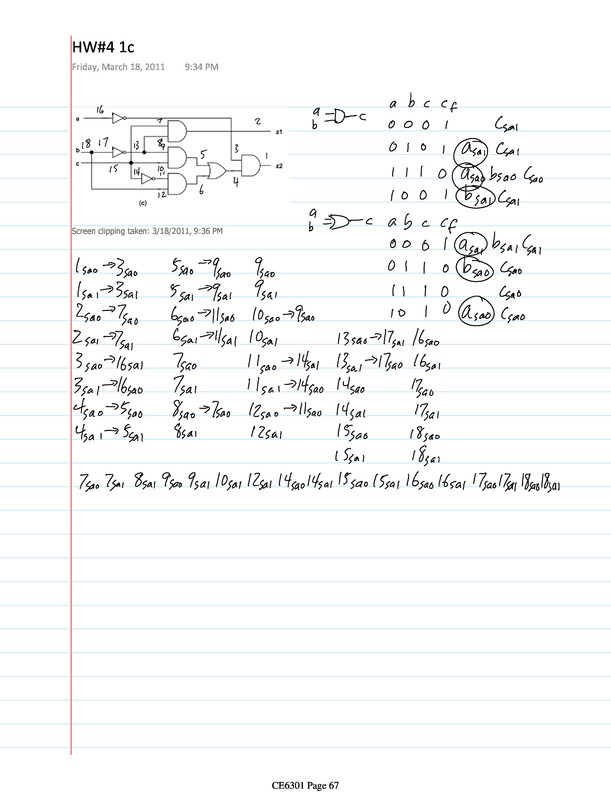 HW#4 1c
Friday, March 18, 2011 9:34 PM
a 16 2 z1
7 3 1 z2
b 18 17 13 8 9 5
c 15 10 4
14 11 6
12
(c)
Screen clipping taken: 3/18/2011, 9:36 PM
a b c a b c cf
0 0 0 1 Csa1
0 1 0 1 asa1 Csa1
1 1 1 0 asa0 bsa0 Csa0
1 0 0 1 bsa1 Csa1
a b c a b c cf
0 0 0 1 asa1 bsa1 Csa1
0 1 1 0 bsa0 Csa0
1 1 1 0 Csa0
1 0 1 0 asa0 Csa0
1sa0→3sa0 5sa0→9sa0 9sa0
1sa1→3sa1 5sa1→9sa1 9sa1
2sa0→7sa0 6sa0→11sa0 10sa0→9sa0
2sa1→7sa1 6sa1→11sa1 10sa1 13sa0→17sa1 16sa0
3sa0→16sa1 7sa0 11sa0→14sa1 13sa1→17sa0 16sa1
3sa1→16sa0 7sa1 11sa1→14sa0 14sa0 17sa0
4sa0→5sa0 8sa0→7sa0 12sa0→11sa0 14sa1 17sa1
4sa1→5sa1 8sa1 12sa1 15sa0 18sa0
15sa1 18sa1
7sa0 7sa1 8sa1 9sa0 9sa1 10sa1 12sa1 14sa0 14sa1 15sa0 15sa1 16sa0 16sa1 17sa0 17sa1 18sa0 18sa1
CE6301 Page 67